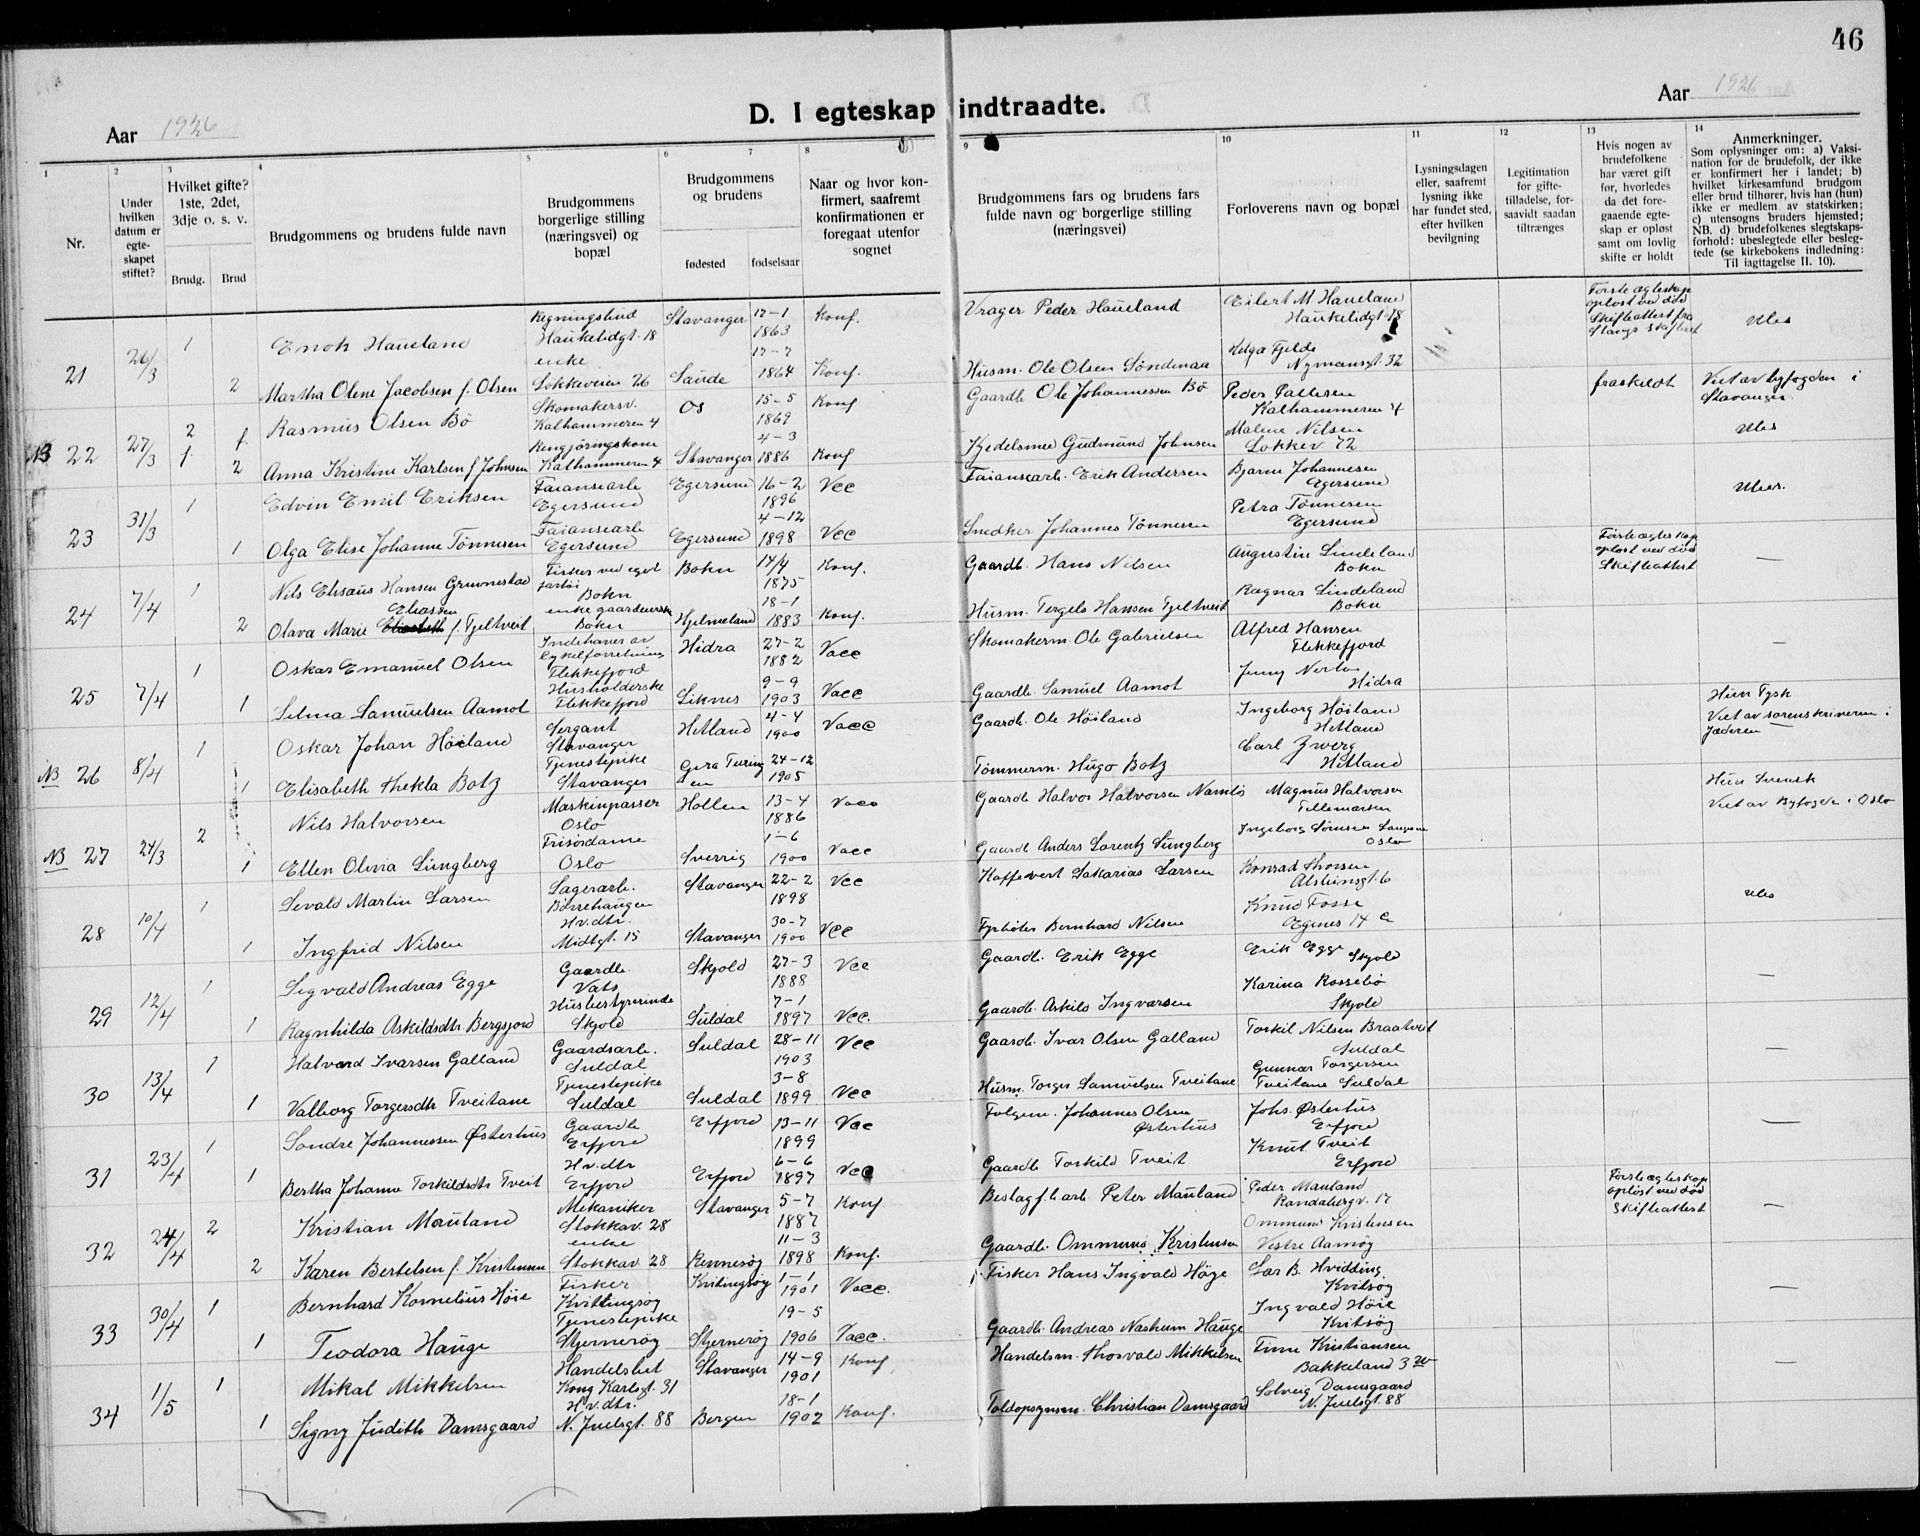 46
Aar 1926
D. I egteskap indtraadte.
Aar 1926
1 2 3 4 5 6 7 8 9 10 11 12 13 14
Nr.
Under hvilken datum er egteskapet stiftet?
Hvilket gifte? 1ste, 2det, 3dje o. s. v.
Brudg. Brud
Brudgommens og brudens fulde navn
Brudgommens borgerlige stilling (næringsvei) og bopæl
Brudgommens og brudens
fødested fødselsaar
Naar og hvor konfirmert, saafremt konfirmationen er foregaat utenfor sognet
Brudgommens fars og brudens fars fulde navn og borgerlige stilling (næringsvei)
Forloverens navn og bopæl
Lysningsdagen eller, saafremt lysning ikke har fundet sted, efter hvilken bevilgning
Legitimation for giftetilladelse, forsaavidt saadan tiltrænges
Hvis nogen av brudefolkene har været gift før, hvorledes da det foregaaende egteskap er opløst samt om lovlig skifte er holdt
Anmerkninger.
Som oplysninger om: a) Vaksination for de brudefolk, der ikke er konfirmert her i landet; b) hvilket kirkesamfund brudgom eller brud tilhører, hvis han (hun) ikke er medlem av statskirken; c) utensogns bruders hjemsted; NB. d) brudefolkenes slegtskapsforhold: ubeslegtede eller beslegtede (se kirkebokens indledning: Til iagttagelse II. 10).
21 26/3 1 Enok Haueland Regningsbud Haukelidgt. 18 Stavanger 17-1 1863 Konf. Vrager Peder Haueland Eilert M Haueland Haukelidgt. 18 Første ægteskap opløst ved død Skifteattest fra Stavgr skifteret Ubes
2 Martha Oline Jacobsen f. Olsen enke Løkkeveien 26 Sande 17-7 1864 Konf. Husm. Ole Olsen Søndenaa Helga Fjelde Nymansgt. 32
NB 22 27/3 2 Rasmus Olsen Bø Skomakersv. Kalhammeren 4 Os 15-5 1869 Konf Gaardb Ole Johannessen Bø Peder Pallesen Kalhammeren 4 fraskildt Viet av byfogden i Stavanger
2 Anna Kristine Karlsen f Johnsen Rengjøringskone Kalhammeren 4 Stavanger 4-3 1886 Konf Kjedelsmed Gudmund Johnsen Malene Nilsen Løkkev. 72 Ubes
23 31/3 1 Edvin Emil Eriksen Faiansearb Egersund Egersund 16-2 1896 Vcc Faiansearb. Erik Andersen Bjarne Johannesen Egersund Ubes.
1 Olga Elise Johanne Tønnesen Faiansearb Egersund Egersund 4-12 1898 Vcc Snedker Johannes Tønnesen Petra Tønnesen Egersund
24 7/4 1 Nils Elisæus Hansen Grunnestad Fisker ved eget fartøi Bokn Bokn 14/4 1875 Konf. Gaardb. Hans Nilsen Augustin Lindeland Bokn Første ægteskap opløst ved død Skifteattest —
2 Olava Marie Eliassen f. Fjeltveit enke gaardeierske Bokn Hjelmeland 18-1 1883 Konf. Husm. Torgels Hansen Fjeltveit Ragnar Lindeland Bokn
25 7/4 1 Oskar Emanuel Olsen Indehaver av Cykelforretning Flekkefjord Hidra 27-2 1882 Vacc Skomakerm. Ole Gabrielsen Alfred Hansen Flekkefjord —
1 Selma Samuelsen Aamot Husholderske Flekkefjord Liknes 9-9 1903 Vacc Gaardb. Samuel Aamot Jenny Hidra
NB 26 8/4 1 Oskar Johan Høiland Sergant Stavanger Hetland 4-4 1900 Vacc Gaardb. Ole Høiland Ingeborg Høiland Hetland Hun Tysk Viet av sorenskriveren i Jæderen
1 Elisabeth Thekla Botz Tjenestepike Stavanger Gera Turingen 24-12 1905 Tømmerm. Hugo Botz Carl Zwerg Hetland
NB 27 24/3 2 Nils Halvorsen Maskinpasser Oslo Hollen 13-4 1886 Vacc Gaardb Halvor Halvorsen Namlos Magnus Halvorsen Tellemarken Hun Svensk Viet av Byfogden i Oslo
1 Ellen Olivia Lungberg Frisørdame Oslo Sverrig 1-6 1900 Vacc Gaardb Anders Lorentz Lungberg Ingeborg Oslo
28 10/4 1 Sevald Martin Larsen Lagerarb. Børrehaugen Stavanger 22-2 1898 Vcc Kaffevert Sakarias Larsen Konrad Thorsen Alsteinsgt. 6 Ubes
1 Ingfrid Nilsen Hv. dtr. Midtgt. 15 Stavanger 30-7 1900 Vcc Fyrbøter Bernhard Nilsen Knud Fosse Egenes 14 c
29 12/4 1 Sigvald Andreas Egge Gaardb. Vats Skjold 27-3 1888 Vcc Gaardb. Erik Egge Erik Egge Skjold —
1 Ragnhilda Askildsdtr. Bergsjord Husbestyrerinde Skjold Suldal 7-1 1897 Vcc. Gaardb. Askild Ingvarsen Karina Rossebø Skjold
30 13/4 1 Halvard Ivarsen Galland Gaardsarb. Suldal Suldal 28-11 1903 Vcc Gaardb. Ivar Olsen Galland Torkil Nilsen Braatveit Suldal —
1 Valborg Torgersdtr Tveitane Tjenestepike Suldal Suldal 3-8 1899 Vcc Husm. Torger Samuelsen Tveitane Gunnar Torgersen Tveitane Suldal
31 23/4 1 Sondre Johannessen Østerhus Gaardb Erfjord Erfjord 13-11 1899 Vcc Folgem. Johannes Olsen Østerhus Johs. Østerhus Erfjord —
1 Bertha Johanne Torkildsdtr Tveit Hv. dtr Erfjord Erfjord 6-6 1897 Vcc Gaardb Torkild Tveit Knut Tveit Erfjord
32 24/4 2 Kristian Mauland Mekaniker Stokkav. 28 Stavanger 5-7 1887 Konf. Beslagf.b arb Peter Mauland Peder Mauland Randabergv. 17 Første ægteskap opløst ved død Skifteattest —
2 Karen Bertelsen f. Kristensen enke Stokkav. 28 Rennesøy 11-3 1898 Konf. Gaardb. Ommund Kristensen Ommund Kristensen Vestre Aamøy
33 30/4 1 Bernhard Kornelius Høie Fisker Kvittingsøy Kvitingsøy 1-1 1901 Vacc. Fisker Hans Ingvald Høie Lar B. Hvidding Kvitsøy —
1 Teodora Hauge Tjenestepike Stjernerøy Stjernerøy 19-5 1906 Vacc. Gaardb. Andreas Naskum Hauge Ingvald Høie Kvitsøy
34 1/5 1 Mikal Mikkelsen Handelsbet Kong Karlsgt. 31 Stavanger 14-9 1901 Konf Handelsm. Thorvald Mikkelsen Finn Kristiansen Bakkeland 3 —
1 Signy Judith Damsgaard Hv. dtr. N. Juelsgt. 88 Bergen 18-1 1902 Konf. Toldopsynsm. Christian Damsgaard Solveig Damsgaard N. Juelsgt. 88